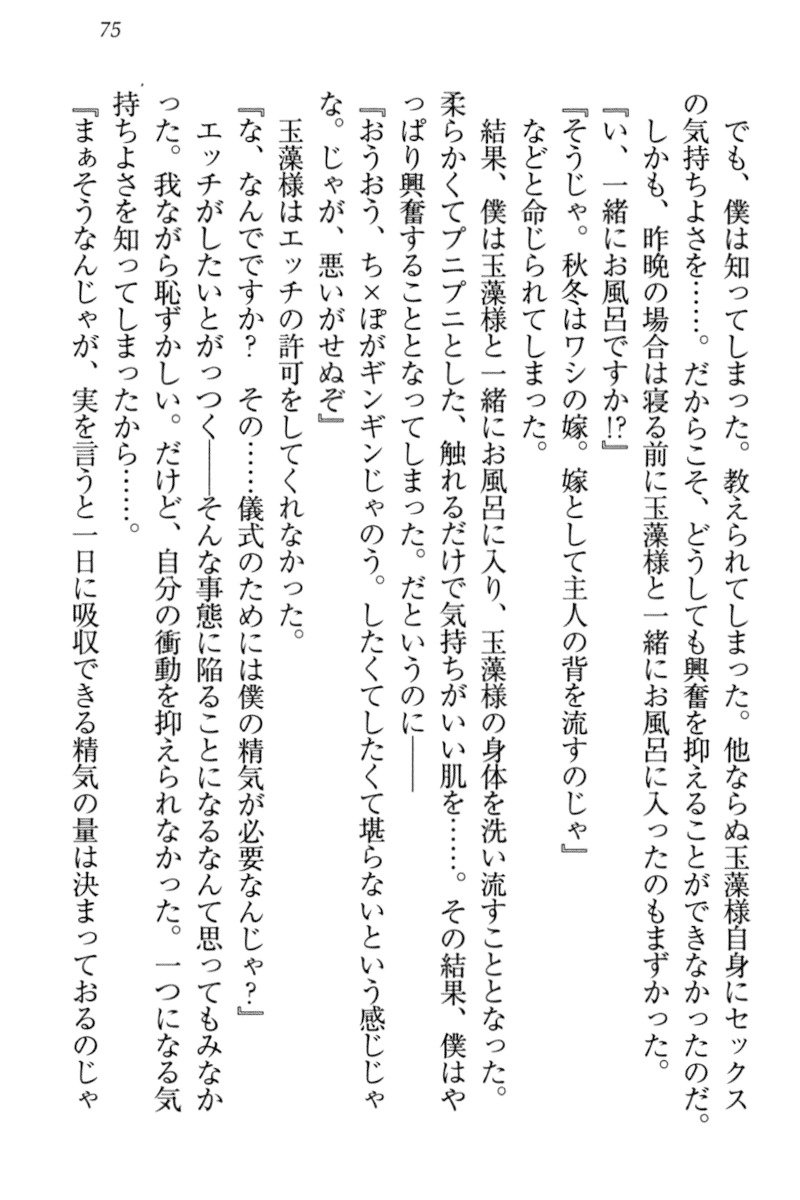 75
でも、僕は知ってしまった。教えられてしまった。他ならぬ玉藻様自身にセックス
の気持ちよさを……。だからこそ、どうしても興奮を抑えることができなかったのだ。
しかも、昨晩の場合は寝る前に玉藻様と一緒にお風呂に入ったのもまずかった。
『い、一緒にお風呂ですか!?』
『そうじゃ。秋冬はワシの嫁。嫁として主人の背を流すのじゃ』
などと命じられてしまった。
結果、僕は玉藻様と一緒にお風呂に入り、玉藻様の身体を洗い流すこととなった。
柔らかくてプニプニとした、触れるだけで気持ちがいい肌を……。その結果、僕はや
っぱり興奮することとなってしまった。だというのに――
『おうおう、ち×ぽがギンギンじゃのう。したくてしたくて堪らないという感じじゃ
な。じゃが、悪いがせぬぞ』
玉藻様はエッチの許可をしてくれなかった。
『な、なんでですか？　その……儀式のためには僕の精気が必要なんじゃ？』
エッチがしたいとがっつく――そんな事態に陥ることになるなんて思ってもみなか
った。我ながら恥ずかしい。だけど、自分の衝動を抑えられなかった。一つになる気
持ちよさを知ってしまったから……。
『まぁそうなんじゃが、実を言うと一日に吸収できる精気の量は決まっておるのじゃ